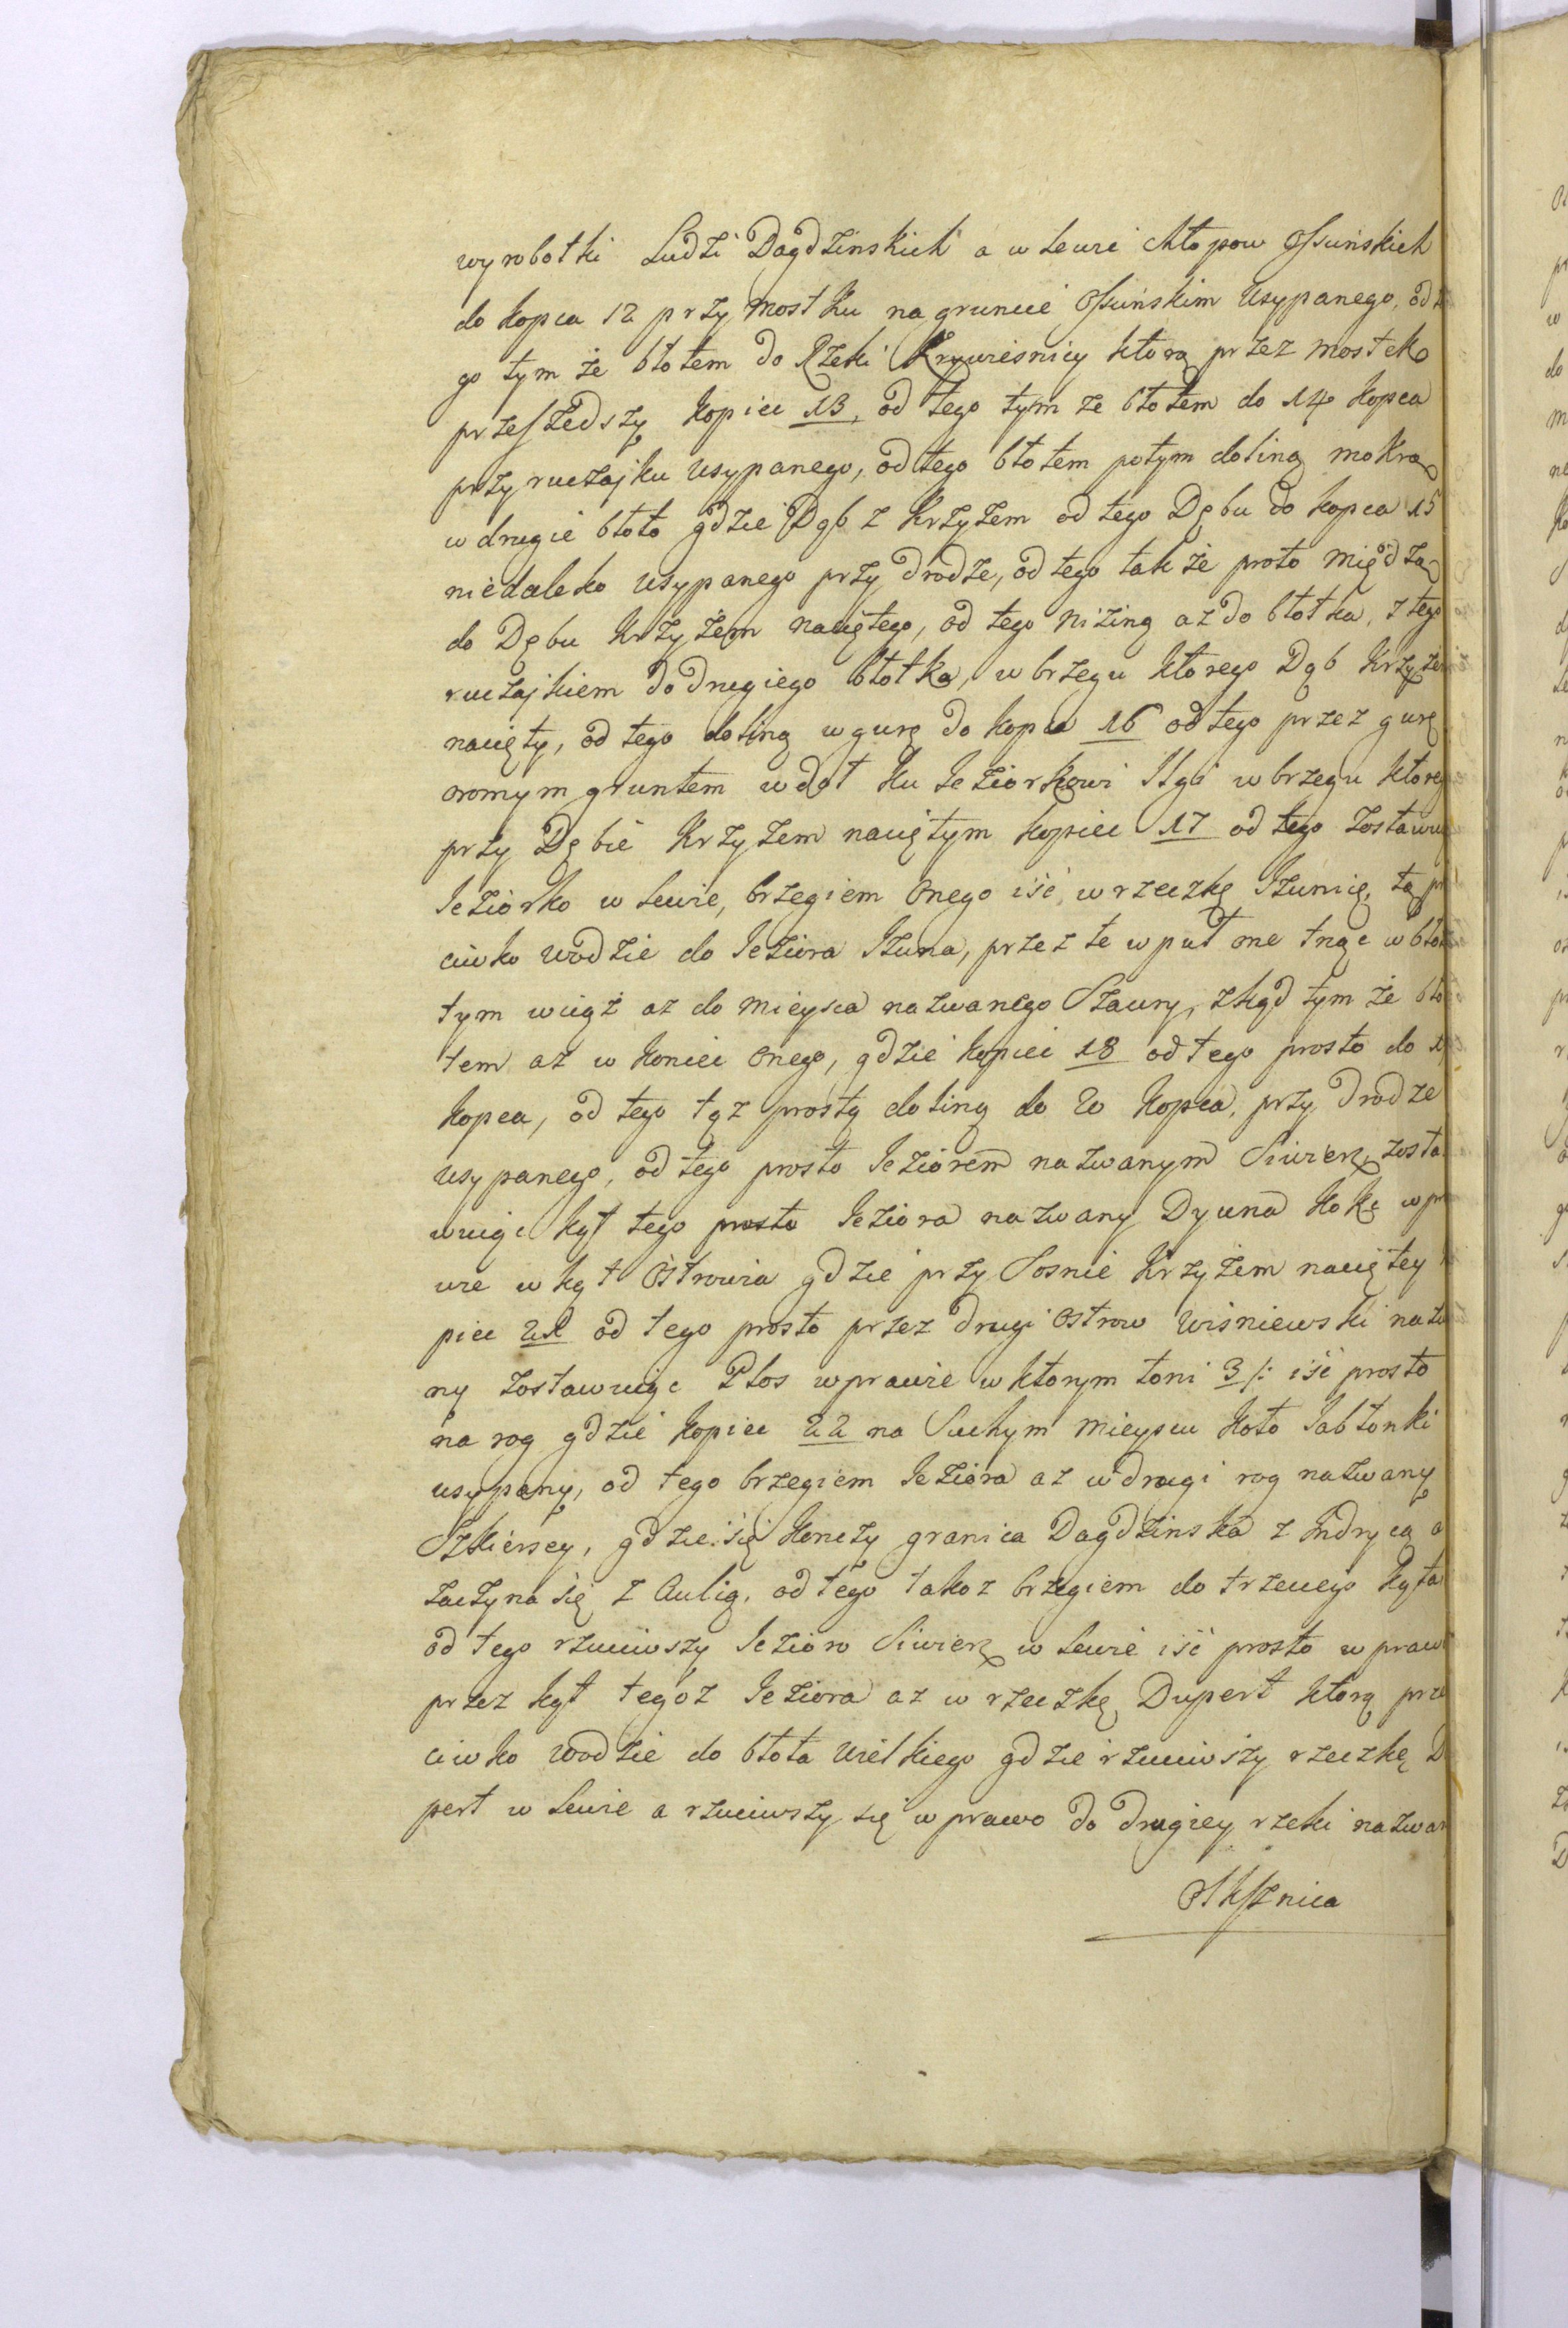 wyrobotki Ludzi Dagdzinskich a w Lewe Chłopow Ossuńskich
do kopca 12 przy mostku na gruncie Ossuńskim Usypanego, od
go tym że błotem do Rzeki Krywieśnicy ktorą przez mostek
przeszedszy kopiec 13, od tego tym ze błotem do 14 kopca
przy ruczajku Usypanego, od tego błotem potym doliną mokrą
w drugie błoto gdzie Dąb z Krzyżem od tego Dębu do kopca 15
niedaleko usypanego przy drodze, od tego tak że prosto Międzą
do Dębu Krzyżem naciętego, od tego niziną aż do błotka, z tego
ruczajkiem do drugiego błotka, w brzegu ktorego Dąb Krzyże
nacięty, od tego doliną w gurę do kopca 16 od tego przez gurę
oromym gruntem w doł Ku Jeziorkowi Ilgi w brzegu ktore
przy Dębie Krzyżem naciętym kopiec 17 od tego Zostawu
Jeziorko w Lewie, brzegiem Onego iść w rzeczkę Iżunicę, tą p
ciwko wodzie do Jeziora Iżuna, przez te w puł one tnąc w bło
tym wciąż az do mieysca nazwanego Szaury, zkąd tym że bło
tem az w koniec onego, gdzie kopiec 18 od tego prosto do 1
kopca, od tego tąż prostą doliną do 20 kopca, przy drodze
usypanego, od tego prosto Jeziorem nazwanym Siwierz zosta
wuiąc kąt tego prosto Jeziora nazwany Dyuna Kokę w pra
wie w kąt Ostrowia gdzie przy Sosnie Krzyżem naciętey
piec 21 od tego prosto przez drugi Ostrow Wisniewski naz
ny zostawuiąc Plos w prawie w ktorym toni 3 /: iść prosto
na rog gdzie kopiec 22 na Suchym mieyscu koło Jabłonki
usypany, od tego brzegiem Jeziora az w drugi rog nazwany
Szkiersey, gdzie się konczy granica Dagdzinska z Indrycą a
zaczyna się z Aulią, od tego takoz brzegiem do trzeciego kąta
od tego rzuciwszy Jezioro Siwierz w Lewie iść prosto w praw
przez kąt tegoz Jeziora az w rzeczkę Dupert ktorą prze
ciwko wodzie do błota wielkiego gdzie rzuciwszy rzeczkę D
pert w Lewie a rzuciwszy się w prawo do drugiey rzeki nazwan